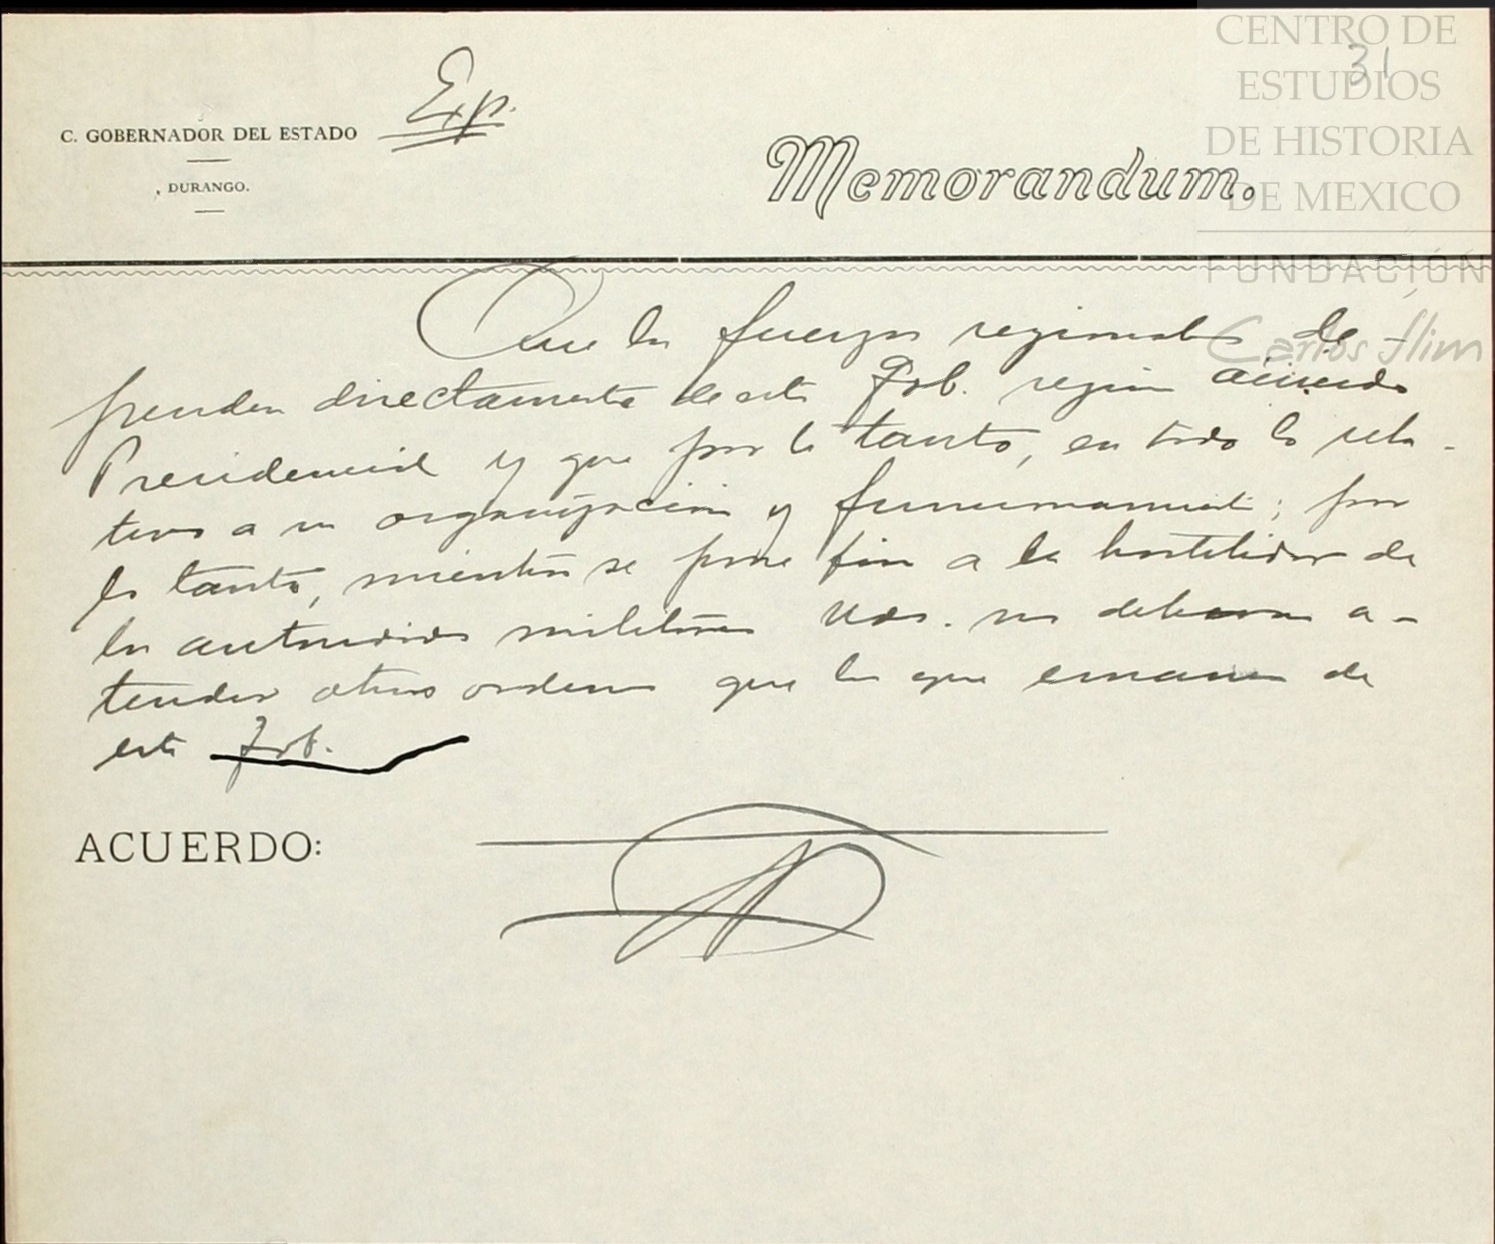 CENTRO DE
ESTUDIOS
DE HISTORIA
DE MEXICO
FUNDACIÓN
Carlos Slim
31
Exp.
C. GOBERNADOR DEL ESTADO
DURANGO.
Memorandum.
Que las fuerzas regionales de
penden directamente de este Gob. según acuerdo
Presidencial y que por lo tanto, en todo lo rela-
tivo a su organización y funcionamiento; por
lo tanto, mientras se pone fin a la hostilidad de
las autoridades militares Uds. no deberan a-
tender otras ordenes que las que emanen de
este Gob.
ACUERDO: